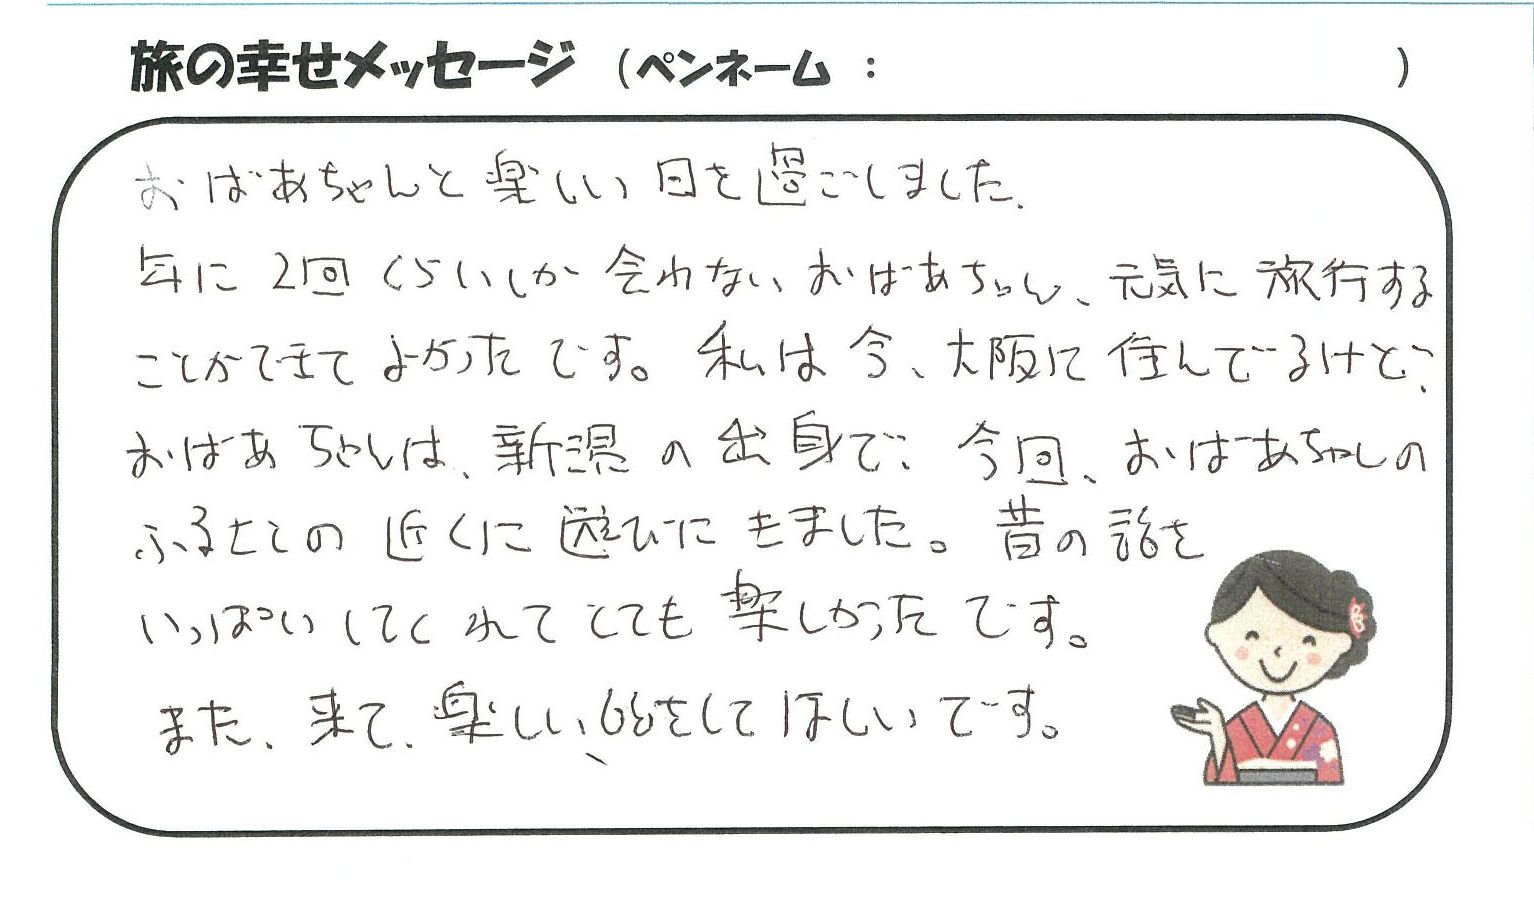 旅の幸せメッセージ （ペンネーム： ）
おばあちゃんと楽しい日を過ごしました.
年に2回くらいしか会れないおばあちゃん、元気に旅行する
ことができてよかったです。私は今、大阪に住んでるけど、
おばあちゃんは、新潟の出身で、今回、おばあちゃんの
ふるさとの近くに遊びにきました。昔の話を
いっぱいしてくれてとても楽しかったです。
また、来て、楽しい、をしてほしいです。